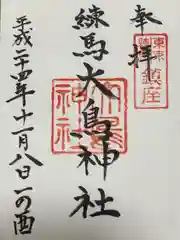 奉拝
東京練馬鎮座
練馬大鳥神社
大鳥神社
平成二十四年十一月八日一の酉